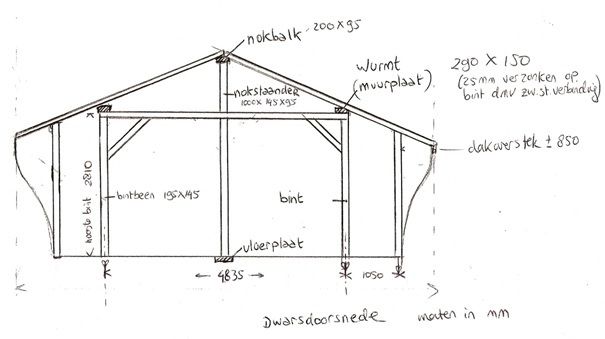 nokbalk - 200 x 95
wurmt
(muurplaat)
290 x 150
(25mm verzonken op
bint d.m.v zw.st.verbinding)
nokstaander
1000 x 145 x 95
dakoverstek ± 850
hoogte bint 2810
bintbeen 195 x 145
bint
vloerplaat
4835
1050
Dwarsdoorsnede maten in mm